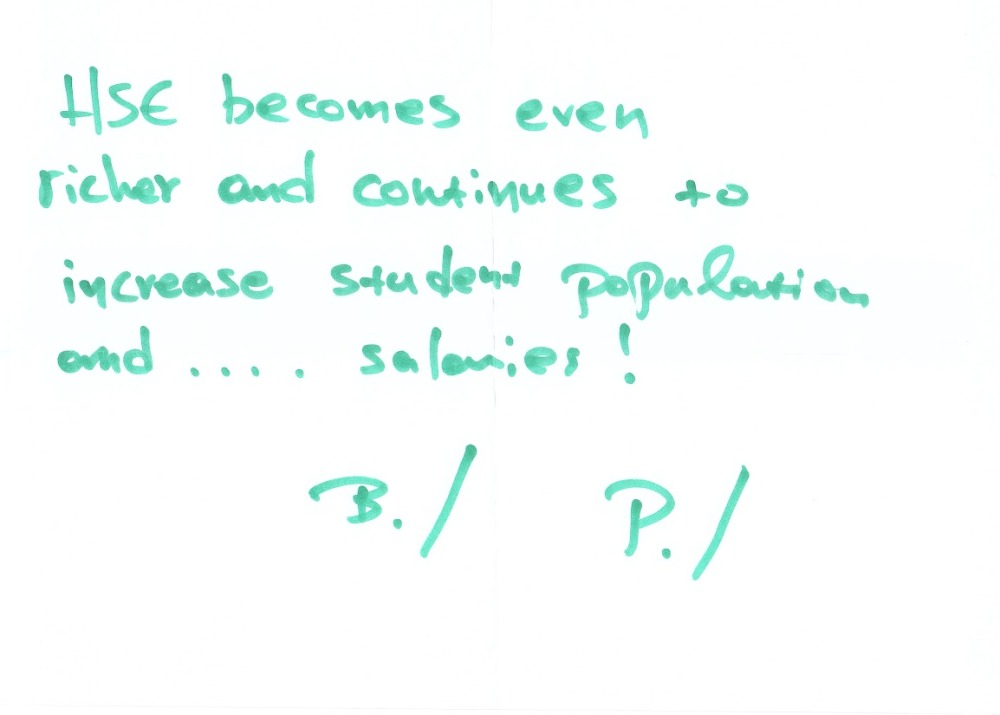 HSE becomes even
richer and continues to
increase student population
and .... salaries!
B./ P./